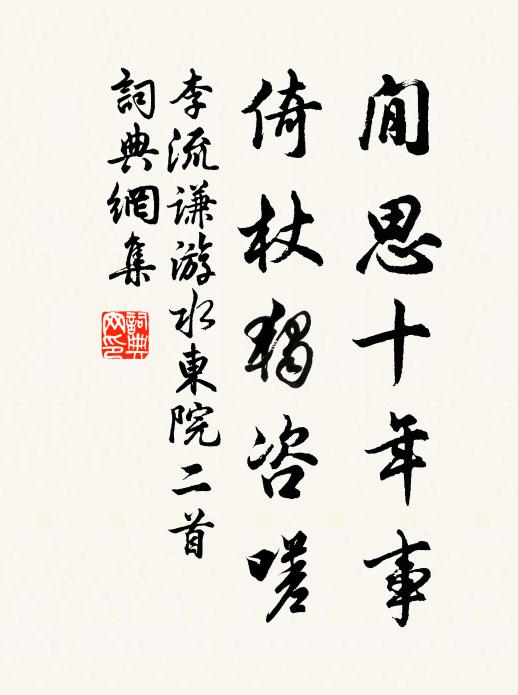 閒思十年事
倚杖獨咨嗟
李流謙游水東院二首
詞典網集
詞典網印